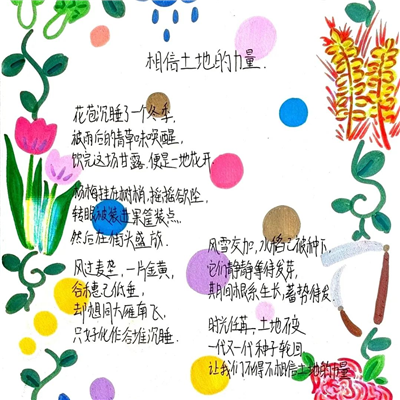 相信土地的力量.
花苞沉睡了一个冬季,
被雨后的青草味唤醒,
饮完这场甘露,便是一地盛开.
杨梅挂在树梢,摇摇欲坠,
转眼被装进果筐装点,
然后在街头盛放.
风过麦垄,一片金黄,
谷穗已低垂,
却想同大雁南飞,
只好化作谷堆沉睡.
风雪交加,水稻已被种下,
它们静静等待发芽,
期间根系生长,蓄势待发.
时光荏苒,土地不变
一代又一代种子轮回
让我们不得不相信土地的力量